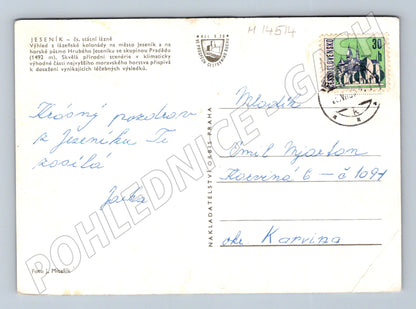 JESENÍK – čs. státní lázně
Výhled z lázeňské kolonády na město Jeseník a na
horské pásmo Hrubého Jeseníku se skupinou Pradědu
(1492 m). Skvělá přírodní scenérie v klimaticky
výhodné části nejvyššího moravského horstva přispívá
k dosažení vynikajících léčebných výsledků.
M 14514
ČESKOSLOVENSKO
30
Krásný pozdrav
z Jeseníku Ti
posílá
Jarka
Foto J. 
NAKLADATELSTVÍ ORBIS PRAHA
Mladík
Emil Mjarton
Karviná 6 – č 1097
okr Karvina
POHLEDNICE SG